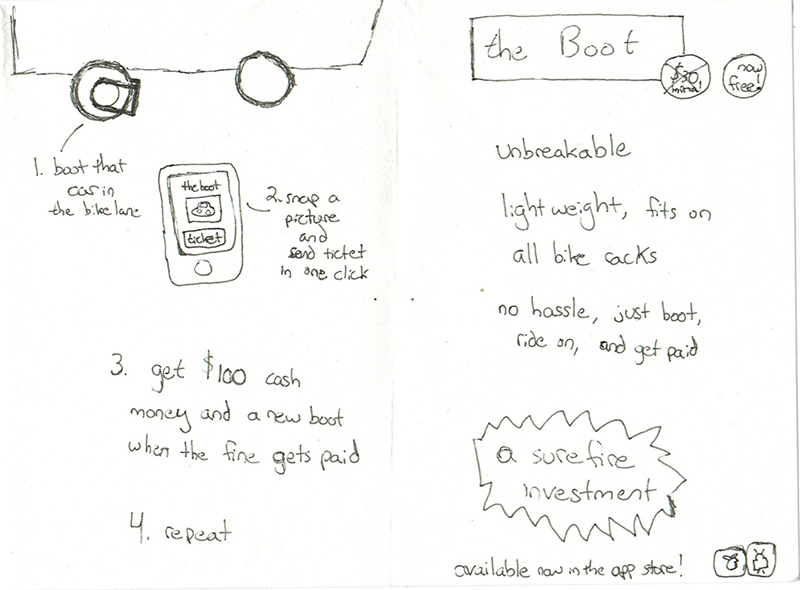 1. boot that
car in
the bike lane
the boot
ticket
2. snap a
picture
and
send ticket
in one click
3. get $100 cash
money and a new boot
when the fine gets paid
4. repeat
the Boot
$30
now
free!
unbreakable
lightweight, fits on
all bike racks
no hassle, just boot,
ride on, and get paid
a surefire
investment
available now in the app store!